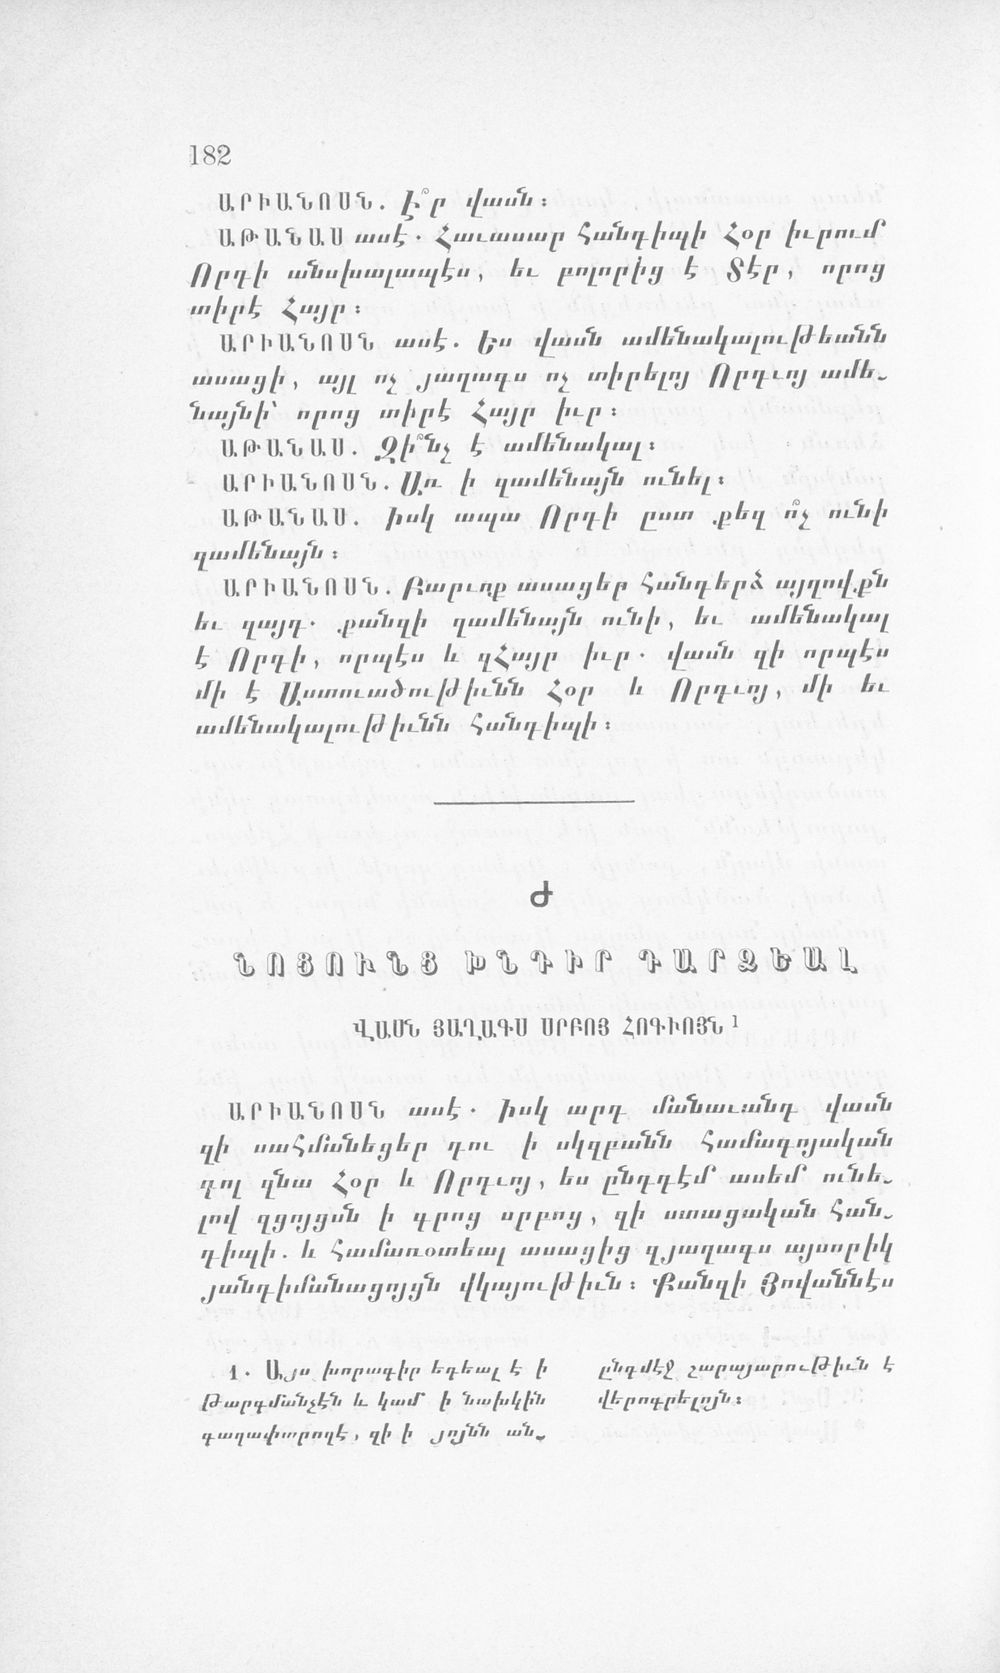 182
ԱՐԻԱՆՈՍՆ. Է՞ր վասն։
ԱԹԱՆԱՍ ասէ. Հաւասար հանդիպի Հօր իւրում
Որդի անսխալապէս, եւ բոլորից է Տէր, որոց
տիրէ Հայր։
ԱՐԻԱՆՈՍՆ ասէ. Ես վասն ամենակալութեանն
ասացի, այլ ոչ յաղագս ոչ տիրելոյ Որդւոյ ամե֊
նայնի՝ որոց տիրէ Հայր իւր։
ԱԹԱՆԱՍ. Զի՞նչ է ամենակալ։
ԱՐԻԱՆՈՍՆ. Առ ի զամենայն ունել։
ԱԹԱՆԱՍ. իսկ ապա Որդի ըստ քեզ ո՞չ ունի
զամենայն։
ԱՐԻԱՆՈՍՆ. Բարւոք ասացեր հանդերձ այղովքն
եւ զայդ. քանզի զամենայն ունի, եւ ամենակալ
է Որդի, որպէս և զՀայր իւր. վասն զի որպէս
մի է Աստուածութիւնն Հօր և Որդւոյ, մի եւ
ամենակալութիւնն հանդիպի։
Ժ
ՆՈՑՈՒՆՑ ԽՆԴԻՐ ԴԱՐՁԵԱԼ
ՎԱՍՆ ՅԱՂԱԳՍ ՍՐԲՈՅ ՀՈԳԻՈՅՆ 1
ԱՐԻԱՆՈՍՆ ասէ. իսկ արդ մանաւանդ վասն
զի սահմանեցեր դու ի սկզբանն համագոյական
գոլ զնա Հօր և Որդւոյ, ես ընդդէմ ասեմ ունե֊
լով զցոյցսն ի գրոց սրբոց, զի ստացական հան֊
դիպի. և համառօտեալ ասացից զյաղագս այսորիկ
յանդիմանացոյցն վկայութիւն։ Քանզի Յովաննէս
1. Այս խորագիր եդեալ է ի
թարգմանչէն և կամ ի նախկին
գաղափարողէ, զի ի յոյնն ան֊
ընդմէջ շարայարութիւն է
վերոգրելոյն։